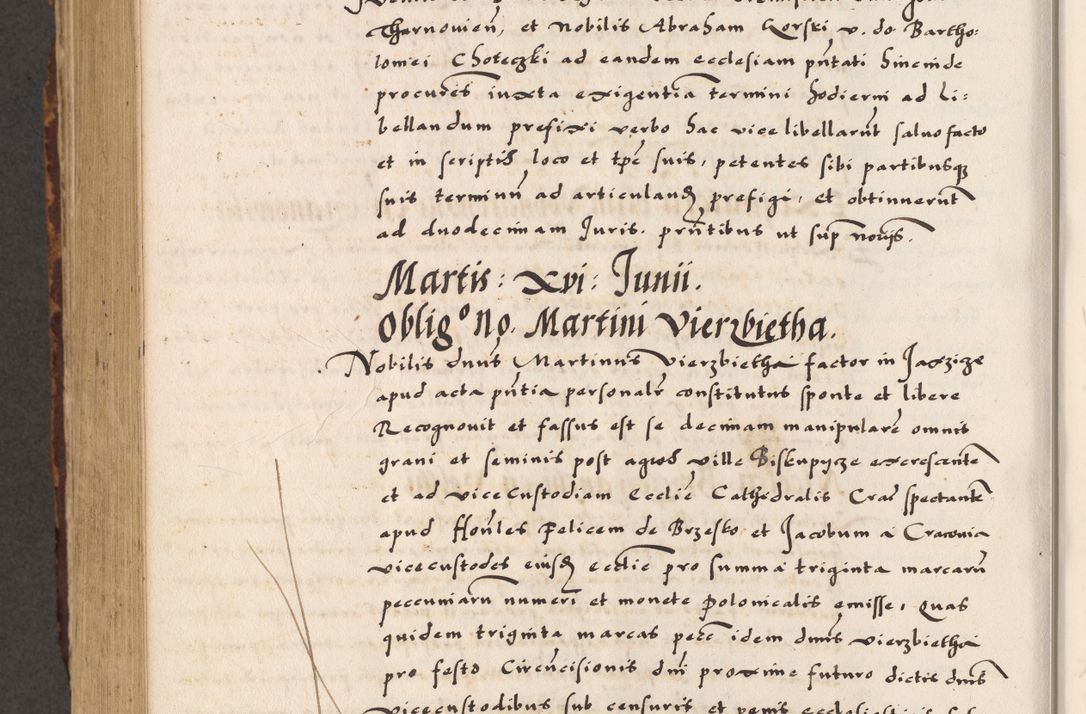 Thernovień, et Nobilis Abraham Gorski v. do Bartho:
lomei Choteczki ad eandem ecclesiam pńtati hincinde
procures iuxta exigentia termini hodierni ad Li:
bellandum prefixi verbo hac vice libellarunt salvo facto
et in scriptis loco et tpe suis, petentes sibi partibusque
suis terminu ad articulandum prefigi, et obtinuerunt
ad duodecimam Juris. prntibus ut sup notarijs.
Martis: xvi: Junii.
Oblig⁰ No. Martini Vierzbietha.
Nobilis dnus Martinus Vierzbietha factor in Jaxzicze
apud acta pńtia personalr constitutus sponte et libere
Recognovit et fassus est se decimam manipulare omnis
grani et seminis post agros ville Biskupycze excrescente
et ad vice Custodiam Ecclie Cathedralis Crac spectante
apud Honles Felicem de Brzesko et Jacobum a Cracovia
vicecustodes eiusdem ecclie pro summa triginta marcaru
peccuniaru numeri et monete Polonicalis emisse, Quas
quidem triginta marcas pecc idem dnus Vierzbietha
pro festo Circucisionis dni proxime futuro dictis dnis
Vicecustodibus sub censuris et penis ecclesiasticis